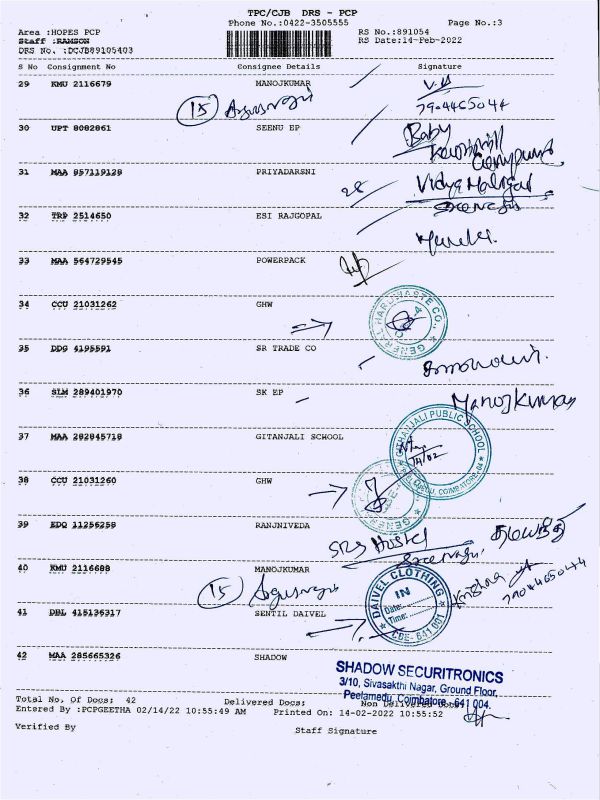 TPC/CJB DRS - PCP
Phone No.:0422-3505555
Page No.:3
Area :HOPES PCP
RS No.:891054
Staff :RAMSON
RS Date:14-Feb-2022
DRS No. :DCJB89105403
S No Consignment No Consignee Details Signature
29 KMU 2116679 MANOJKUMAR
7904465044
15
30 UPT 8082861 SEENU EP
Baby
31 MAA 957119128 PRIYADARSNI
28
32 TRP 2514650 ESI RAJGOPAL
33 MAA 564729545 POWERPACK
34 CCU 21031262 GHW
GENERAL HARDWARE CO.,
35 DDG 4195591 SR TRADE CO
36 SLM 289401970 SK EP
Manojkumar
37 MAA 282845718 GITANJALI SCHOOL
GITHANJALI PUBLIC SCHOOL
PEELAMEDU, COIMBATORE-04
14/02
38 CCU 21031260 GHW
GENERAL
39 EDQ 11256258 RANJNIVEDA
SRS Hostel
40 KMU 2116688 MANOJKUMAR
15
Krishna
7904465044
41 DBL 415136317 SENTIL DAIVEL
DAIVEL CLOTHING
IN
Date:
Time:
CBE- 641 001
42 MAA 285665326 SHADOW
SHADOW SECURITRONICS
3/10, Sivasakthi Nagar, Ground Floor,
Peelamedu, Coimbatore - 641 004.
Total No. Of Docs: 42 Delivered Docs: Non Delivered Docs:
Entered By :PCPGEETHA 02/14/22 10:55:49 AM Printed On: 14-02-2022 10:55:52
Verified By Staff Signature